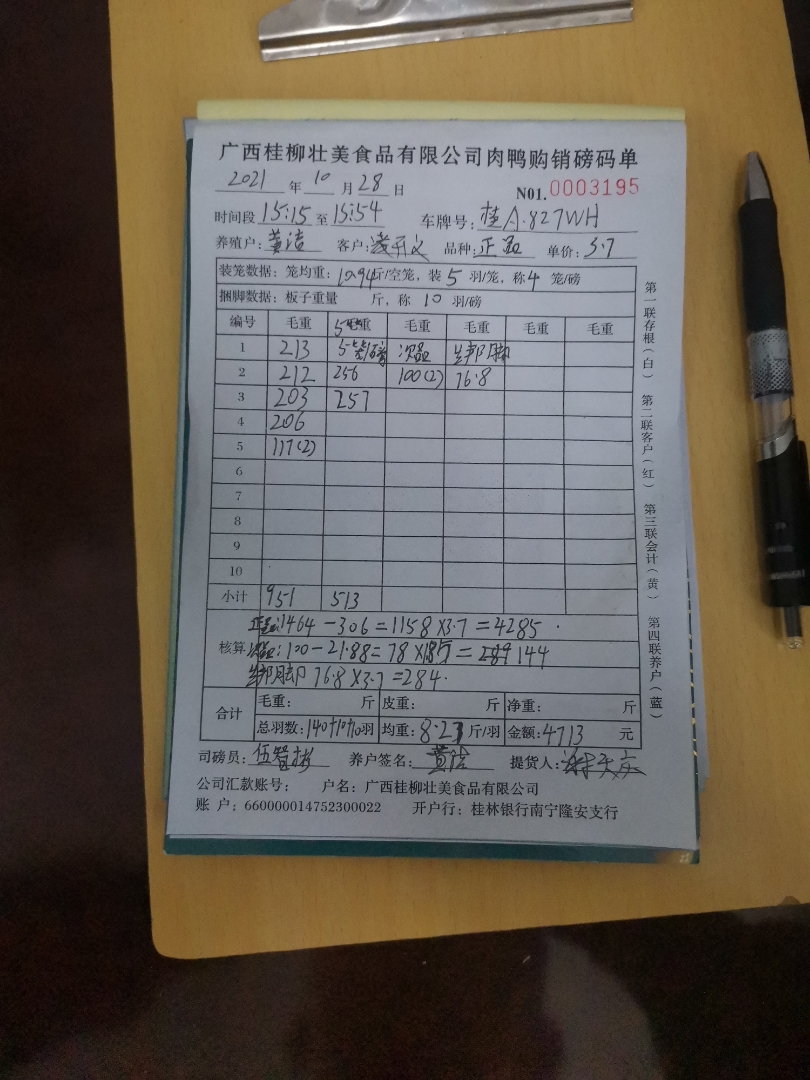 广西桂柳壮美食品有限公司肉鸭购销磅码单
2021 年 10 月 28 日 N01. 0003195
时间段 15:15 至 15:54 车牌号: 桂A.827WH
养殖户: 黄洁 客户: 品种: 正品 单价: 3.7
装笼数据: 笼均重: 10.94斤/空笼, 装 5 羽/笼, 称 4 笼/磅
捆脚数据: 板子重量 斤, 称 10 羽/磅
编号 毛重 毛重 毛重 毛重 毛重 毛重
1 213 5笼/磅 次品 绑脚
2 212 256 100(2) 76.8
3 203 257
4 206
5 117(2)
6
7
8
9
10
小计 951 513
正品:1464-306=1158×3.7=4285.
核算 次品:100-21.88=78× = 144
绑脚 76.8×3.7=284.
合计 毛重: 斤 皮重: 斤 净重: 斤
总羽数:140+10+10羽 均重: 8.27 斤/羽 金额: 4713 元
司磅员: 养户签名: 黄洁 提货人:
公司汇款账号: 户名: 广西桂柳壮美食品有限公司
账 户: 660000014752300022 开户行: 桂林银行南宁隆安支行
第一联存根(白) 第二联客户(红) 第三联会计(黄) 第四联养户(蓝)